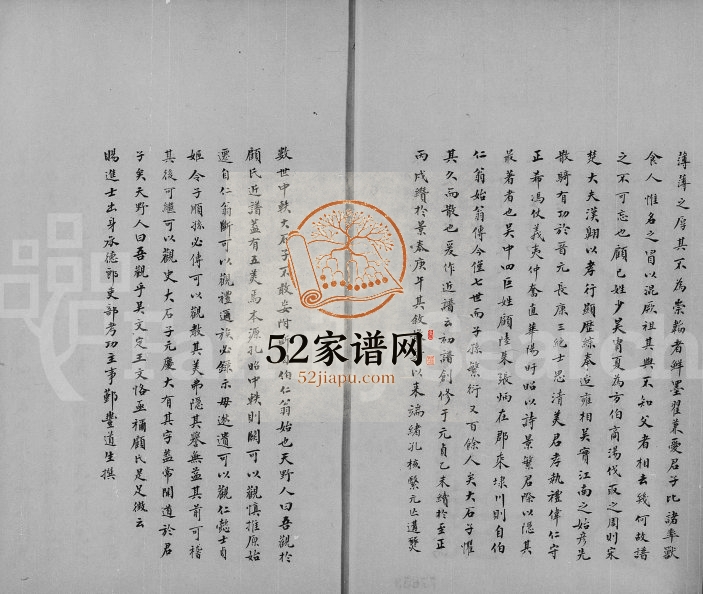 薄薄之厚其不為崇韜者鮮墨翟兼愛君子比諸率獸
食人惟名之冒以混厥祖其與不知父者相去幾何故譜
之不可忘也顧己姓少吴膏夏為方伯商湯伐而之周則宋
楚大夫漢翱以孝行顯歷綜奉迫雍相吴實江南之始彦先
散騎有功於晋元長康三絶士思清美君孝執禮偉仁守
正希馮仗義夷仲奮直華陽盱昭以詩景繁君際以隱其
最著者也吴中四巨姓顧陸朱張炳在郡乘埭川則自伯
仁翁始翁傳今僅七世而子孫繁衍又百餘人矣大石子懼
其久而散也爰作近譜云初譜創修于元貞乙未續於至正
丙戌纘於景泰庚午其敘 以来端緒孔核繫元亡遺燹
數世中軼大石子不敢妄附 伯仁翁始也天野人曰吾觀於
顧氏近譜蓋有五美焉本源孔昭中軼則闕可以觀慎推原始
遷自仁翁斷可以觀禮通族必錄示毋遐遺可以觀仁懿士貞
姬令子順孫必傳可以觀教其美弗隱其譽無益其前可稽
其後可繼可以觀史大石子元慶大有其字蓋常聞道於君
子矣天野人曰吾觀乎吴文定王文恪亟稱顧氏是足徵云
賜進士出身承德郎吏部考功主事鄞豐道生撰
52家谱网
52jiapu.com